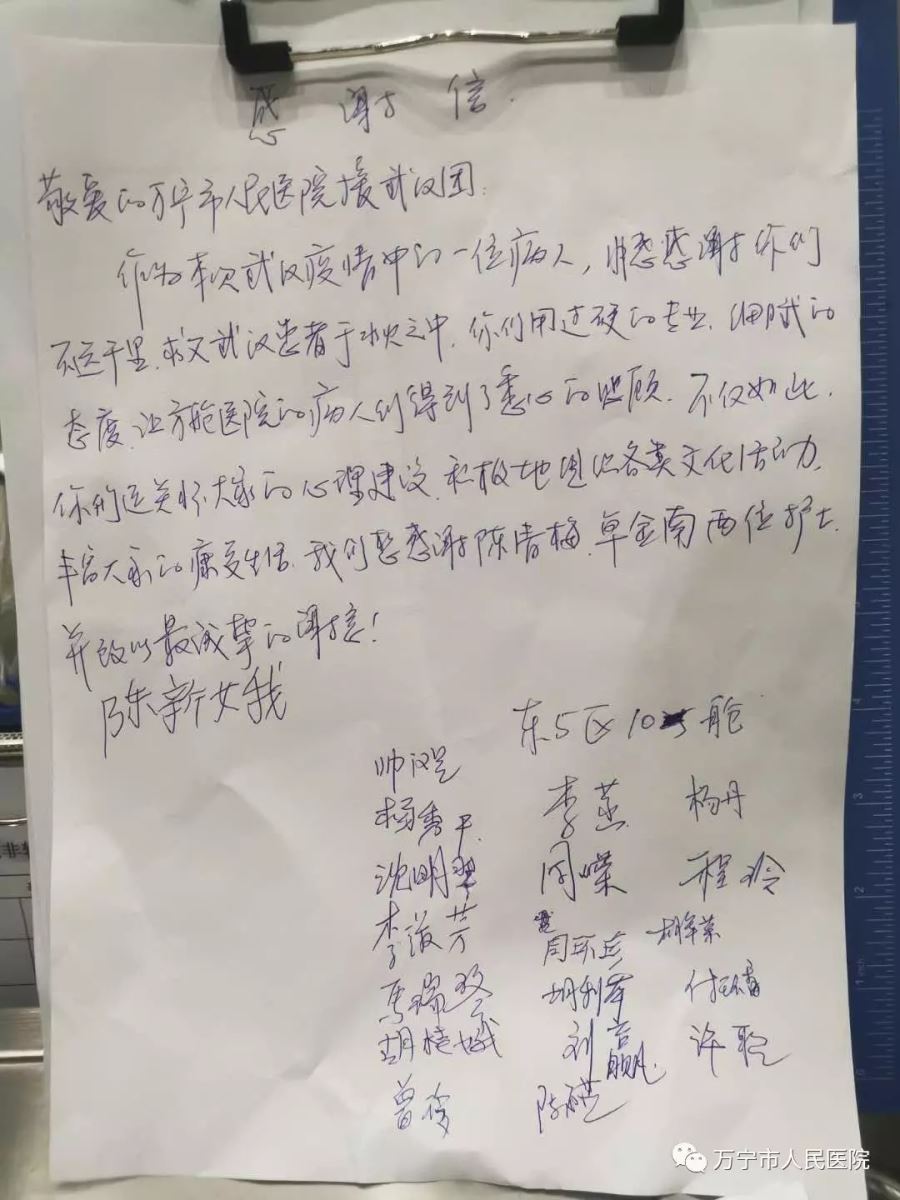 感谢信.
敬爱的万宁市人民医院援武汉团:
作为本次武汉疫情中的一位病人,非常感谢你们
不远千里.求救武汉患者于水火之中.你们用过硬的专业.细腻的
态度.让方舱医院的病人们得到了悉心的照顾.不仅如此.
你们还关怀大家的心理建设.积极地组织各类文化活动.
丰富大家的康复生活.我们想感谢陈清梅.卓金南两位护士.
并致以最诚挚的谢意!
陈新娥
东5区10舱
帅汉
杨秀平 李燕 杨丹
沈明翠 闵嵘 程玲
李淑芳 周环兵 胡翠荣
马瑞 胡利军 付倩
胡桂娥 刘言 许聪
曾俊 陈
万宁市人民医院